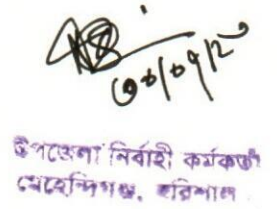 উপজেলা নির্বাহী কর্মকর্তা
মেহেন্দিগঞ্জ, বরিশাল